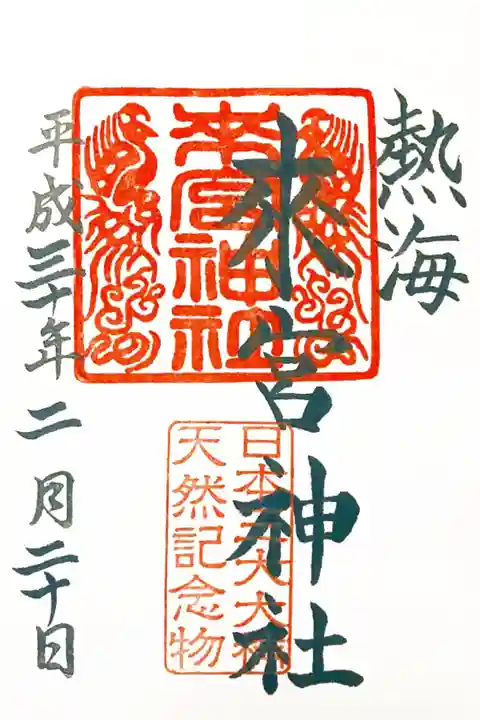 熱海
來宮神社
來宮神社
日本三大大楠
天然記念物
平成三十年二月二十日